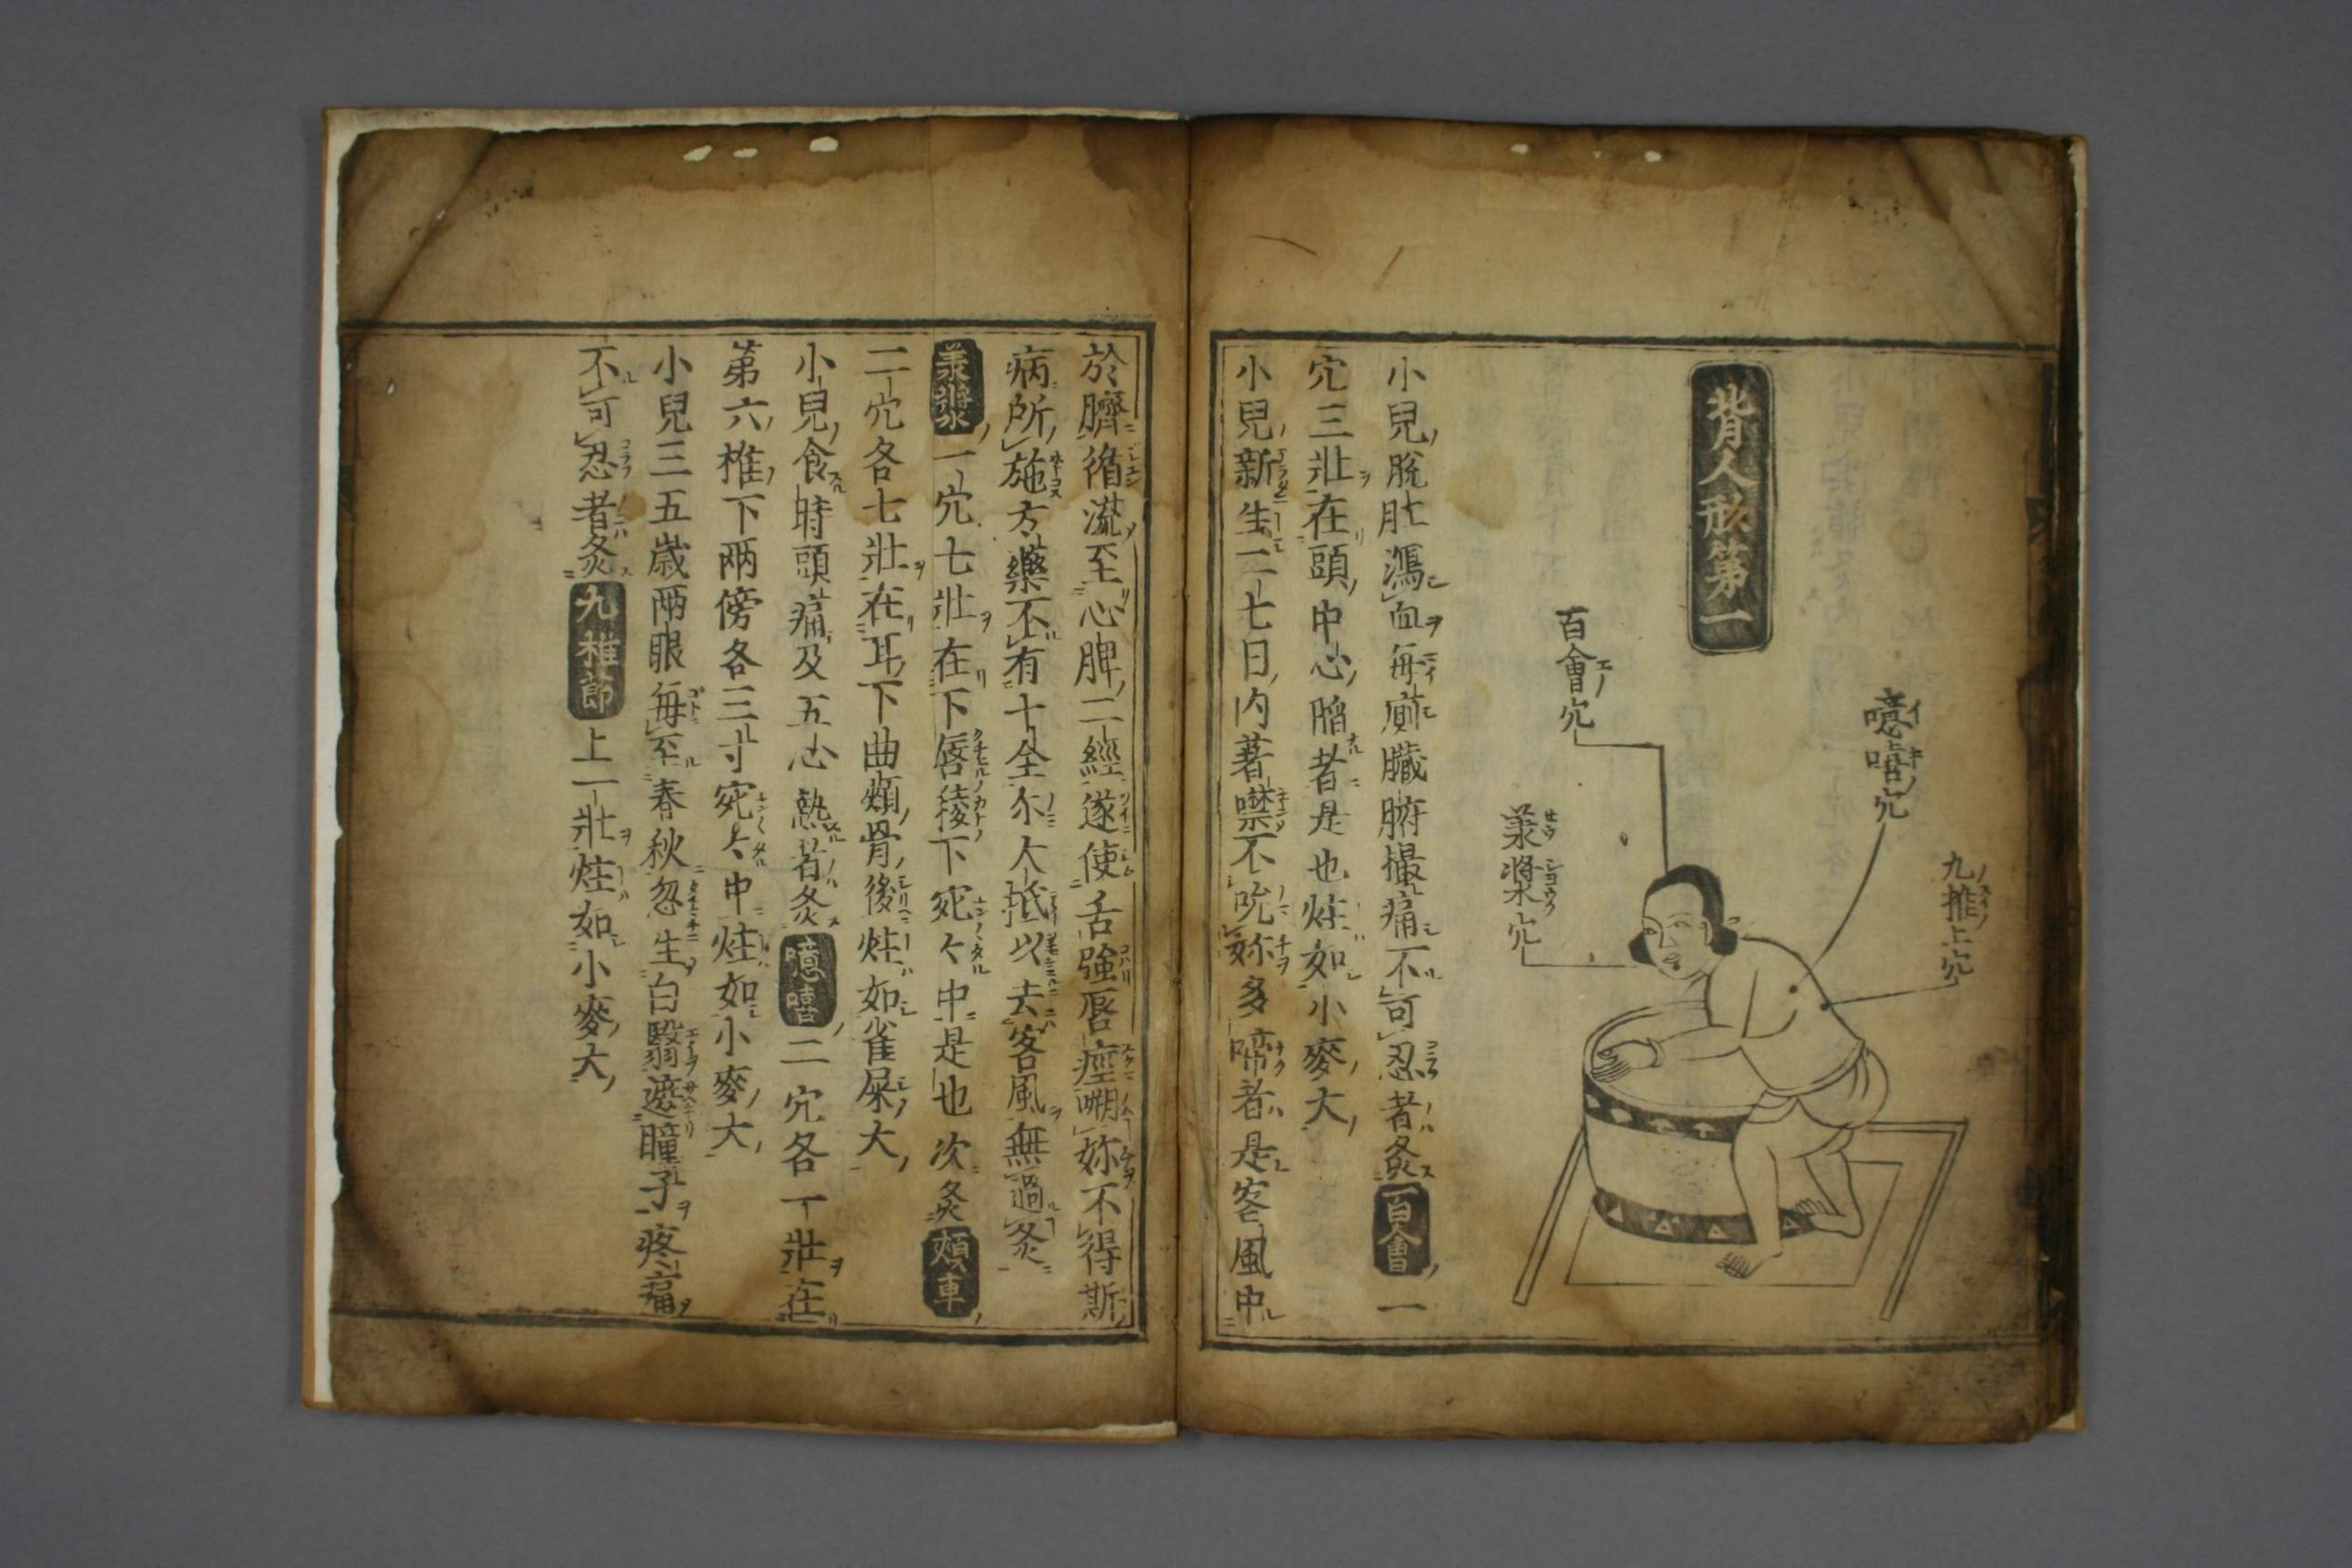 背人形第一
噫嘻穴
九椎上穴
百會穴
羕漿穴
小兒脫肚瀉血每廁臟腑撮痛不可忍者灸百會一
穴三壯在頭中心陷者是也炷如小麥大
小兒新生二七日內著噤不吮妳多啼者是客風中
於臍循流至心脾二經遂使舌強唇痙嗍妳不得斯
病所施方藥不有十全尓大抵以去客風無過灸
羕漿一穴七壯在下唇稜下宛々中是也次灸頰車
二穴各七壯在耳下曲頰骨後炷如雀屎大
小兒食時頭痛及五心熱者灸噫嘻二穴各一壯在
第六椎下兩傍各三寸宛々中炷如小麥大
小兒三五歲兩眼每至春秋忽生白翳遮瞳子疼痛
不可忍者灸九椎節上一壯炷如小麥大